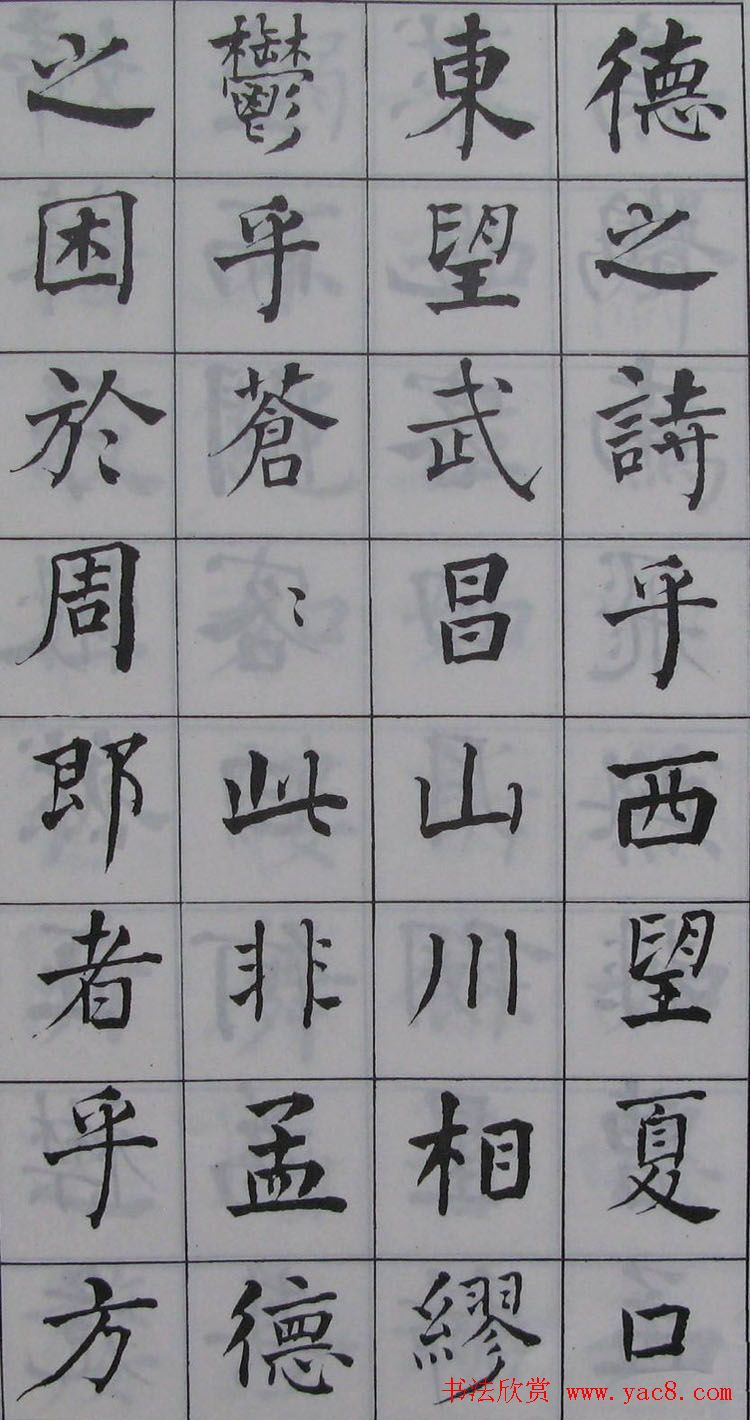 德之詩乎西望夏口
東望武昌山川相繆
鬱乎蒼〻此非孟德
之困於周郎者乎方
书法欣赏 www.yac8.com